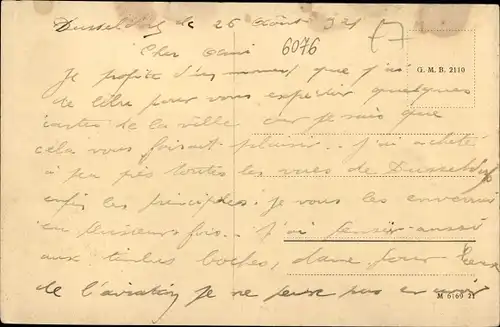 Dusseldorf le 26 Août 21
6076
Cher ami
G. M. B. 2110
Je profite d'un moment que j'ai
de libre pour vous expedier quelques
cartes de la ville car je sais que
cela vous faisait plaisir.. J'ai acheté
à peu près toutes les vues de Dusseldorf
enfin les principales. Je vous les enverrai
en plusieurs fois.. J'ai pensé aussi
aux timbres boches, dame pour ceux
de l'aviation je ne peux pas en avoir
M 6169 21